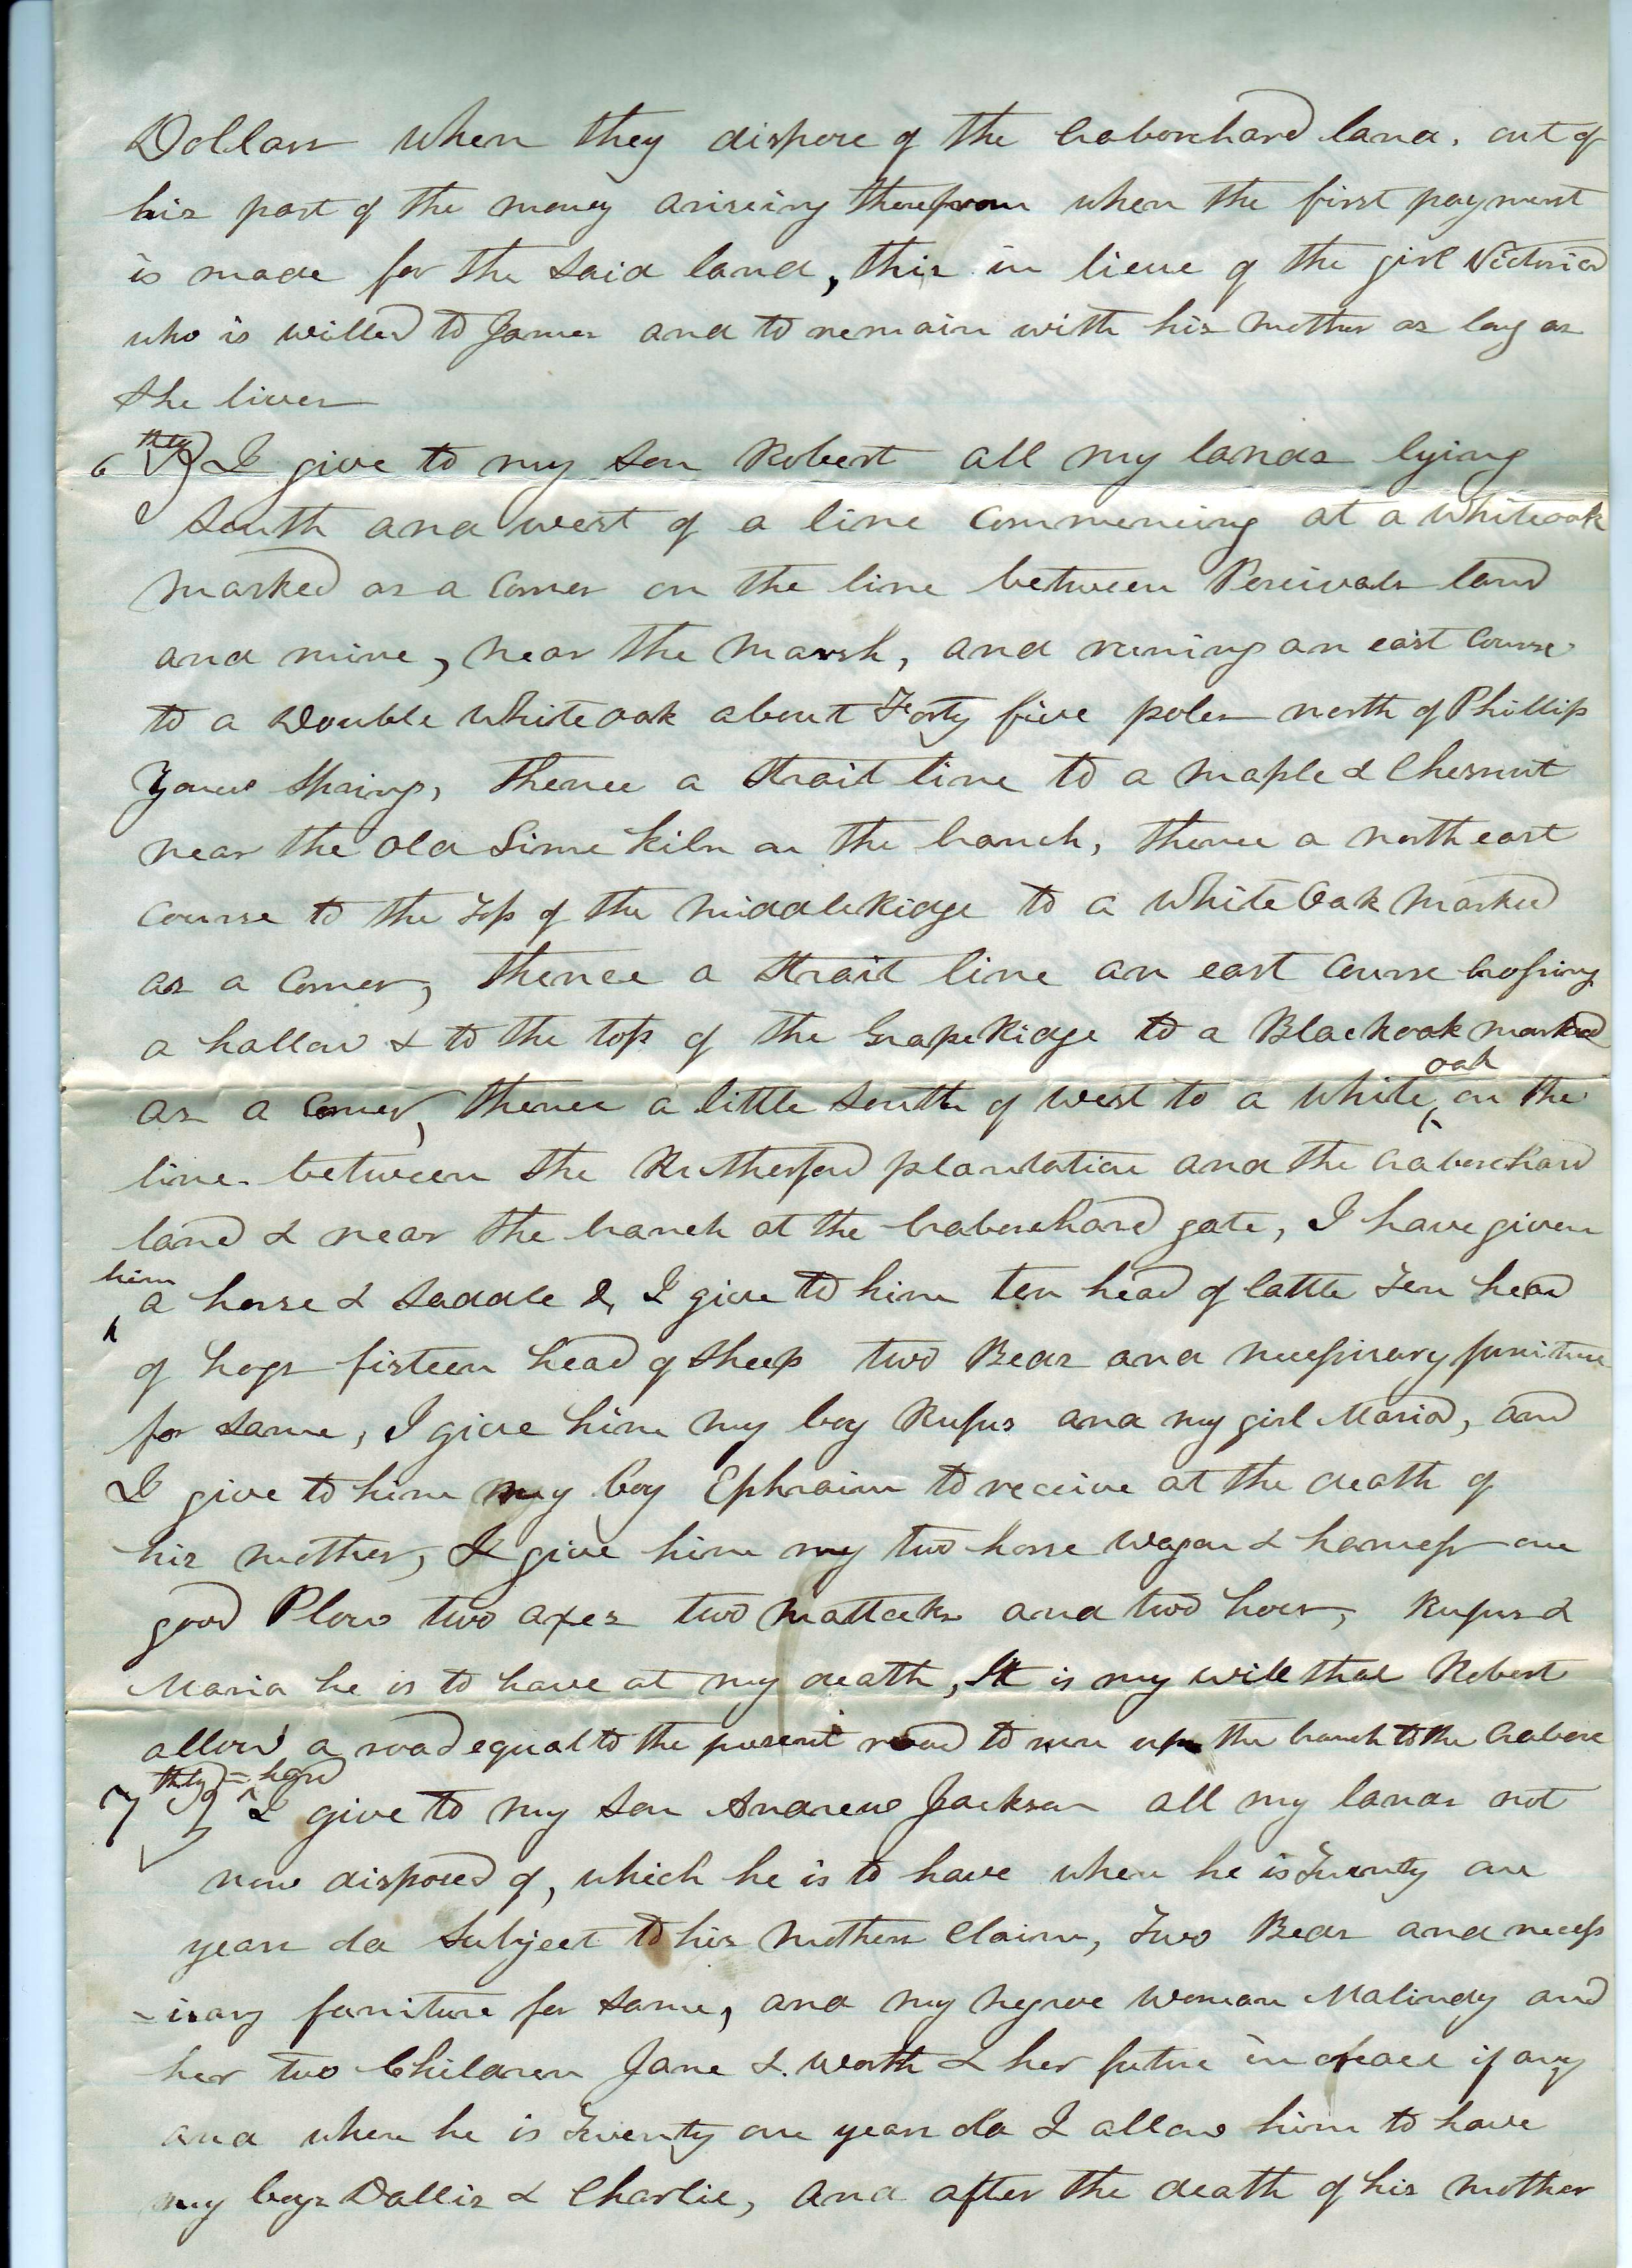 Dollars when they dispose of the Craborchard land, out of
his part of the money ariseing therefrom when the first payment
is made for the said land, this in lieue of the girl Victoria
who is willed to James and to remain with his mother as long as
she lives
6thly I give to my son Robert all my lands lying
South and west of a line Commencing at a Whiteoak
marked as a Corner on the line between Percivals land
and mine, near the marsh, and runing an east Course
to a Double White oak about Forty five poles north of Phillip
Spring, thence a Strait line to a maple & Chesnut
near the Old Lime kiln on the branch, thence a north east
Course to the Top of the middle Ridge to a White Oak marked
as a Corner, thence a Strait line an east Course Crossing
a hallow & to the top of the Grape Ridge to a Blackoak marked
as a Corner, thence a little South of west to a White oak on the
line between the Rutherford plantation and the Craborchard
land & near the branch at the Craborchard gate, I have given
him a horse & Saddle & I give to him ten head of Cattle Ten head
of hogs fisteen head of Sheep two Beds and necessisary funiture
for same, I give him my boy Rufus and my girl Maria, and
I give to him my boy Ephraim to receive at the death of
his mother, I give him my two horse wagon & harness one
good Plow two axes two mattocks and two hoes, Rufus &
Maria he is to have at my death, It is my will that Robert
allow a road equal to the present road to run up the branch to the Craborc
=hard
7thly I give to my son Andrew Jackson all my lands not
now disposed of, which he is to have when he is Twenty one
years old Subject to his mothers Claim, Two Beds and necess
=isary funiture for same, and my negroe woman Malindy and
her two Children Jane & Worth & her future increase if any
and when he is Twenty one years old I allow him to have
my boys Dallis & Charlie, and after the death of his mother